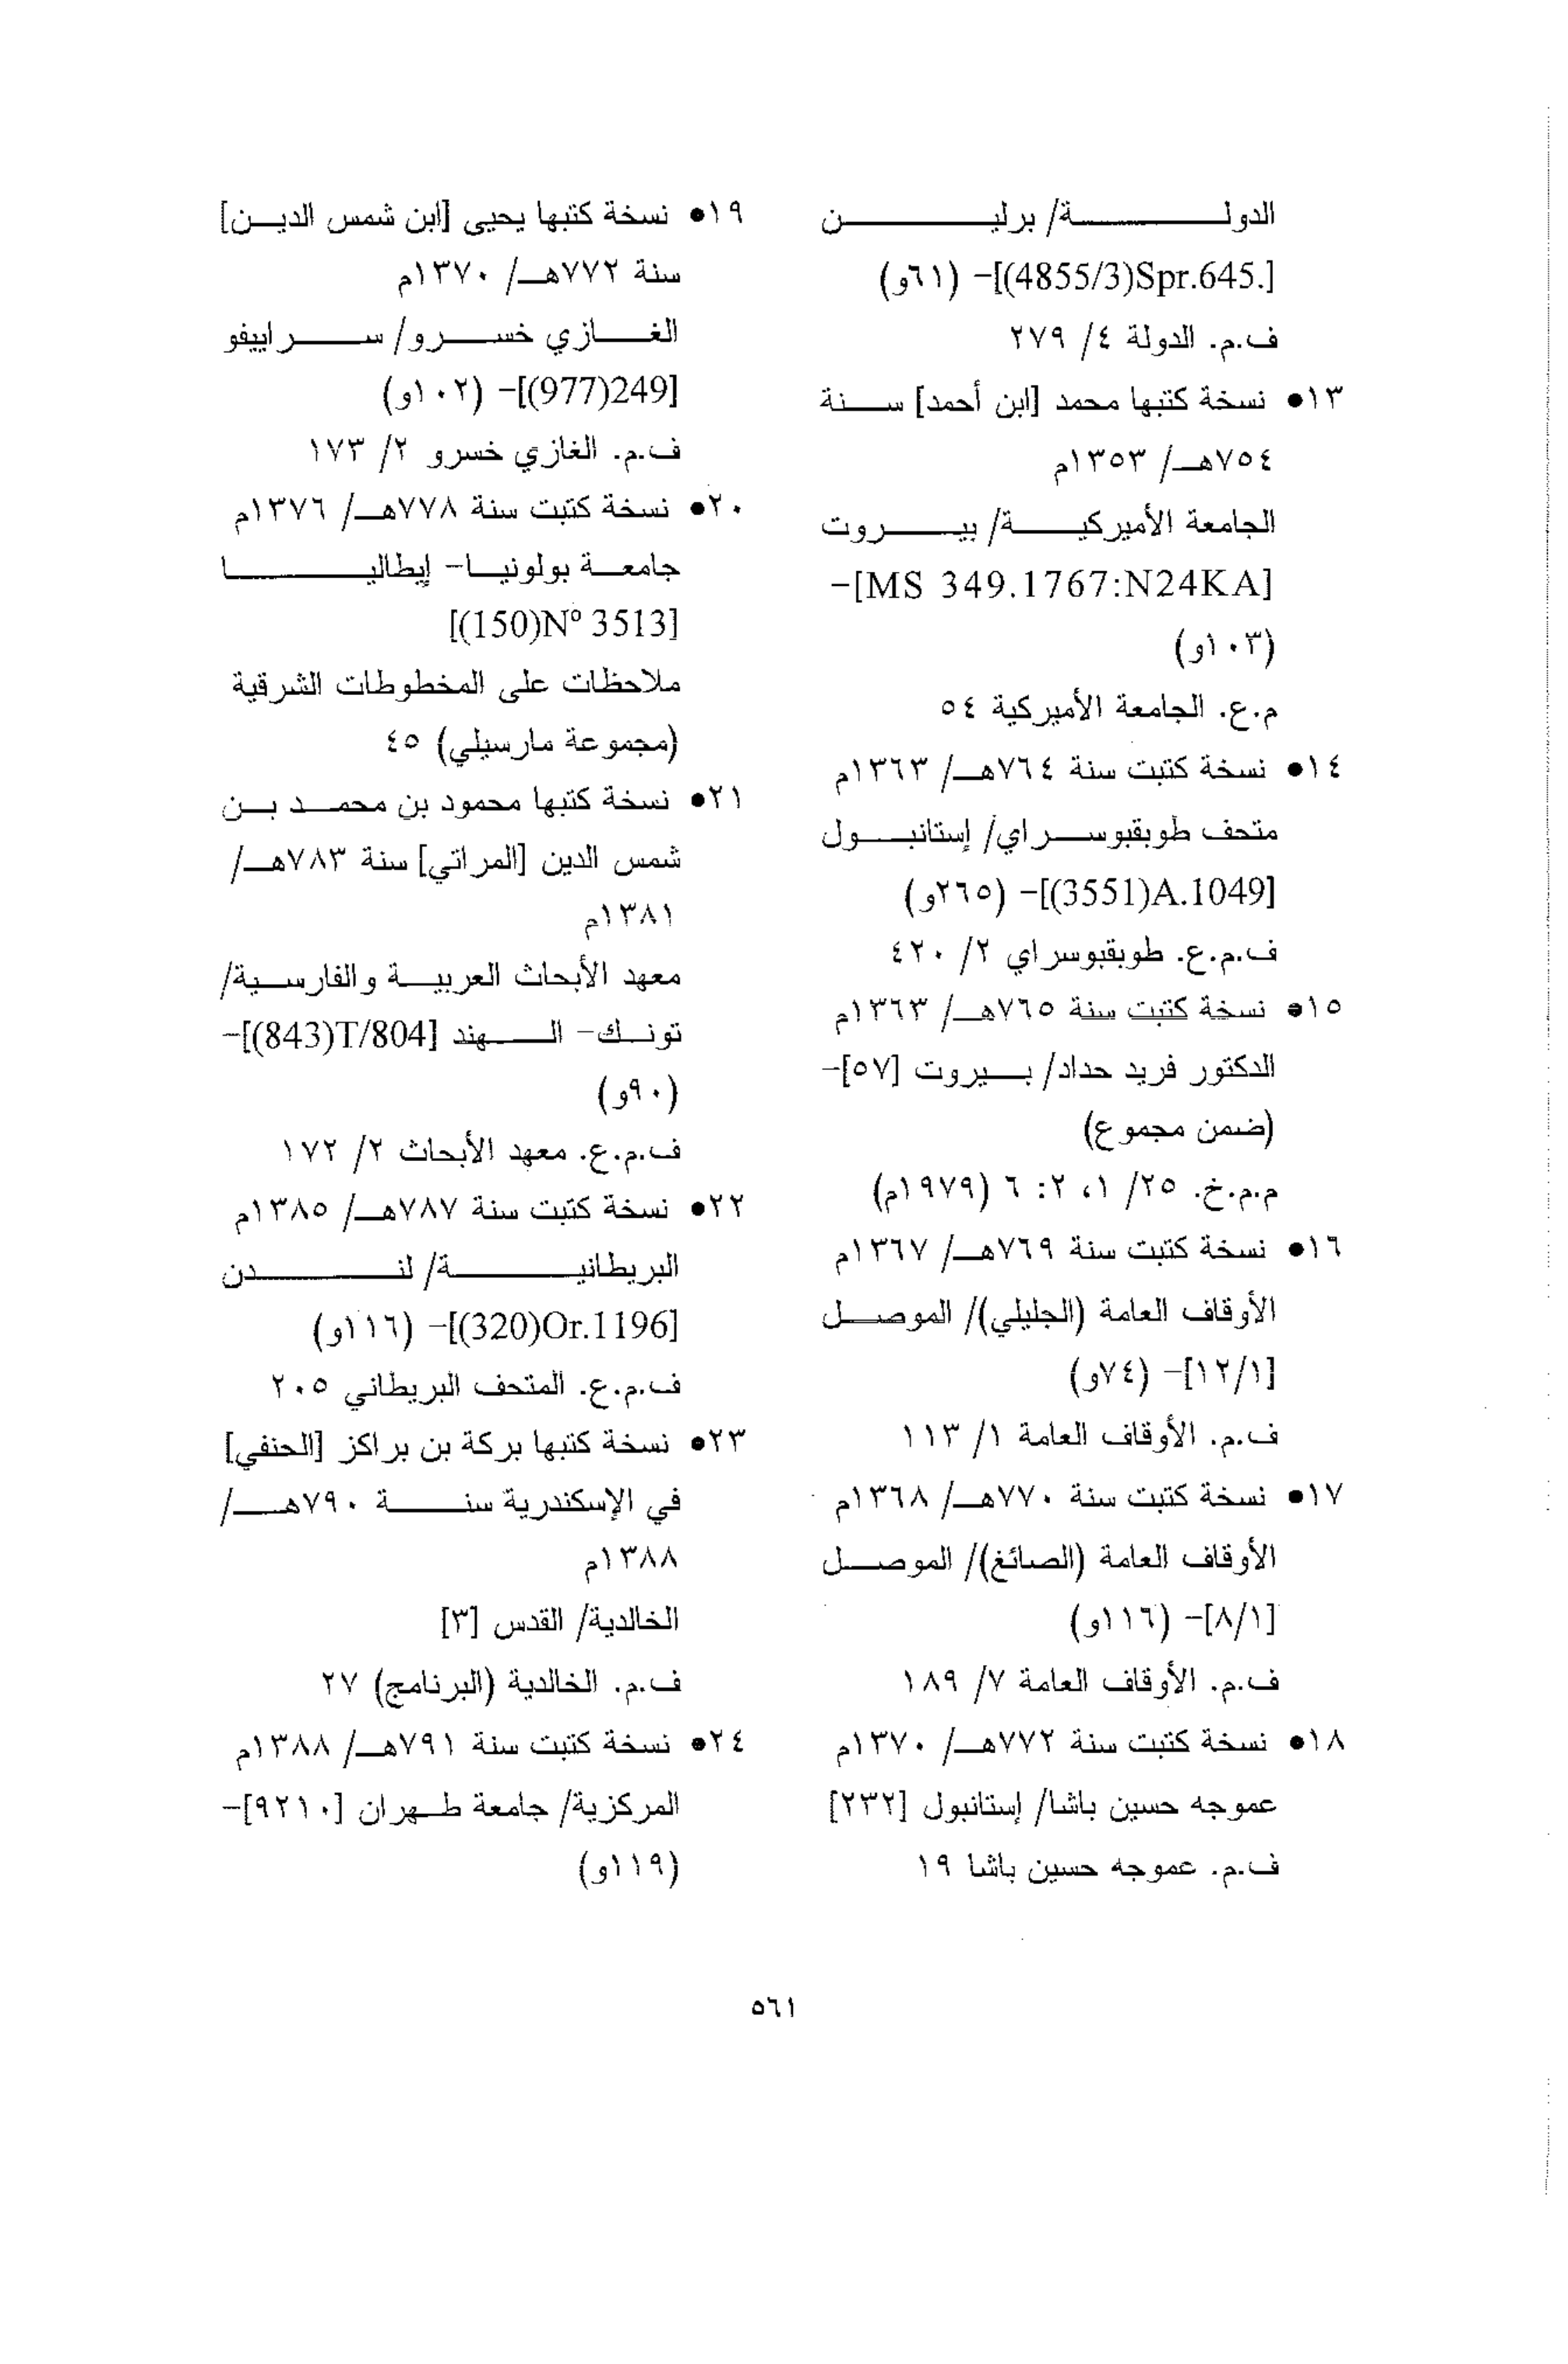 الدولـــــة/ برليـــــن
[(4855/3)Spr.645.]- (٦١و)
ف.م. الدولة ٤/ ٢٧٩
١٣• نسخة كتبها محمد [ابن أحمد] سـنة
٧٥٤هـ/ ١٣٥٣م
الجامعة الأميركيـــة/ بيـــروت
[MS 349.1767:N24KA]-
(١٠٣و)
م.ع. الجامعة الأميركية ٥٤
١٤• نسخة كتبت سنة ٧٦٤هـ/ ١٣٦٣م
متحف طوبقبوســراي/ إستانبــول
[(3551)A.1049]- (٢٦٥و)
ف.م.ع. طوبقبوسراي ٢/ ٤٢٠
١٥• نسخة كتبت سنة ٧٦٥هـ/ ١٣٦٣م
الدكتور فريد حداد/ بــيروت [٥٧]-
(ضمن مجموع)
م.م.خ. ٢٥/ ١، ٢: ٦ (١٩٧٩م)
١٦• نسخة كتبت سنة ٧٦٩هـ/ ١٣٦٧م
الأوقاف العامة (الجليلي)/ الموصــل
[١٢/١]- (٧٤و)
ف.م. الأوقاف العامة ١/ ١١٣
١٧• نسخة كتبت سنة ٧٧٠هـ/ ١٣٦٨م
الأوقاف العامة (الصائغ)/ الموصــل
[٨/١]- (١١٦و)
ف.م. الأوقاف العامة ٧/ ١٨٩
١٨• نسخة كتبت سنة ٧٧٢هـ/ ١٣٧٠م
عموجه حسين باشا/ إستانبول [٢٣٢]
ف.م. عموجه حسين باشا ١٩
١٩• نسخة كتبها يحيى [ابن شمس الديــن]
سنة ٧٧٢هـ/ ١٣٧٠م
الغــازي خســرو/ ســراييفو
[(977)249]- (١٠٢و)
ف.م. الغازي خسرو ٢/ ١٧٣
٢٠• نسخة كتبت سنة ٧٧٨هـ/ ١٣٧٦م
جامعــة بولونيــا- إيطاليـــا
[(150)Nº 3513]
ملاحظات على المخطوطات الشرقية
(مجموعة مارسيلي) ٤٥
٢١• نسخة كتبها محمود بن محمــد بــن
شمس الدين [المراتي] سنة ٧٨٣هـ/
١٣٨١م
معهد الأبحاث العربيــة والفارســية/
تونــك- الــهند [(843)T/804]-
(٩٠و)
ف.م.ع. معهد الأبحاث ٢/ ١٧٢
٢٢• نسخة كتبت سنة ٧٨٧هـ/ ١٣٨٥م
البريطانيــــة/ لنــــدن
[(320)Or.1196]- (١١٦و)
ف.م.ع. المتحف البريطاني ٢٠٥
٢٣• نسخة كتبها بركة بن براكز [الحنفي]
في الإسكندرية سنــة ٧٩٠هــ/
١٣٨٨م
الخالدية/ القدس [٣]
ف.م. الخالدية (البرنامج) ٢٧
٢٤• نسخة كتبت سنة ٧٩١هـ/ ١٣٨٨م
المركزية/ جامعة طــهران [٩٢١٠]-
(١١٩و)
٥٦١